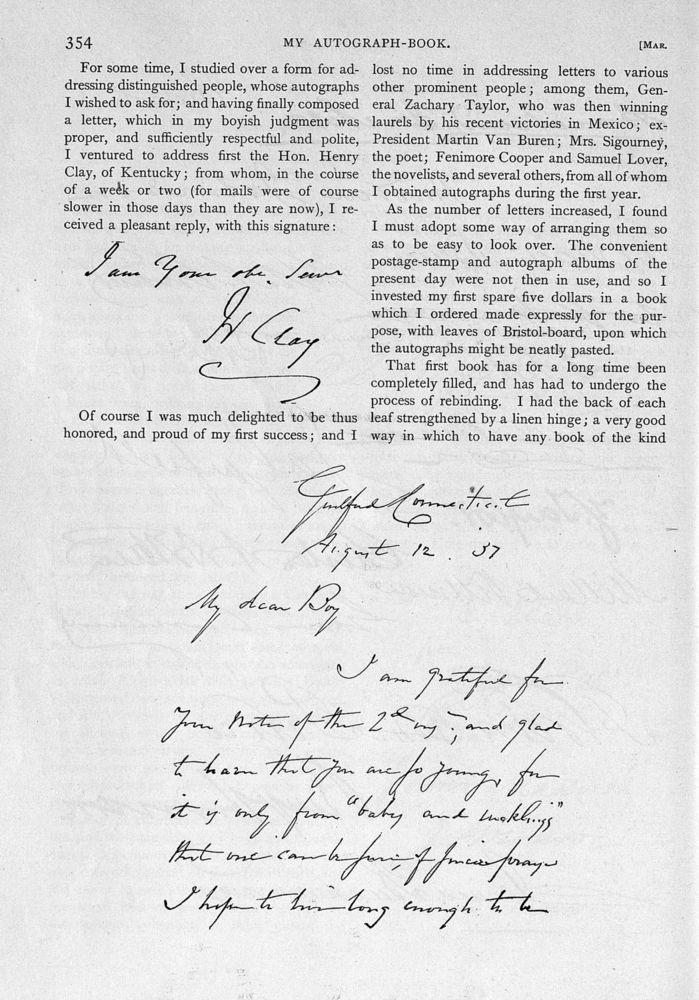 354
MY AUTOGRAPH-BOOK.
[MAR.
For some time, I studied over a form for ad-
dressing distinguished people, whose autographs
I wished to ask for; and having finally composed
a letter, which in my boyish judgment was
proper, and sufficiently respectful and polite,
I ventured to address first the Hon. Henry
Clay, of Kentucky; from whom, in the course
of a week or two (for mails were of course
slower in those days than they are now), I re-
ceived a pleasant reply, with this signature:
I am Your obt. Serv
H Clay
Of course I was much delighted to be thus
honored, and proud of my first success; and I
lost no time in addressing letters to various
other prominent people; among them, Gen-
eral Zachary Taylor, who was then winning
laurels by his recent victories in Mexico; ex-
President Martin Van Buren; Mrs. Sigourney,
the poet; Fenimore Cooper and Samuel Lover,
the novelists, and several others, from all of whom
I obtained autographs during the first year.
As the number of letters increased, I found
I must adopt some way of arranging them so
as to be easy to look over. The convenient
postage-stamp and autograph albums of the
present day were not then in use, and so I
invested my first spare five dollars in a book
which I ordered made expressly for the pur-
pose, with leaves of Bristol-board, upon which
the autographs might be neatly pasted.
That first book has for a long time been
completely filled, and has had to undergo the
process of rebinding. I had the back of each
leaf strengthened by a linen hinge; a very good
way in which to have any book of the kind
Guilford Connecticut
August 12. 57
My dear Boy
I am grateful for
Your Note of the 2d and glad
to learn that you are so young, for
it is only from "babes and sucklings"
that one can be sure of sincere praise
I hope to live long enough to be